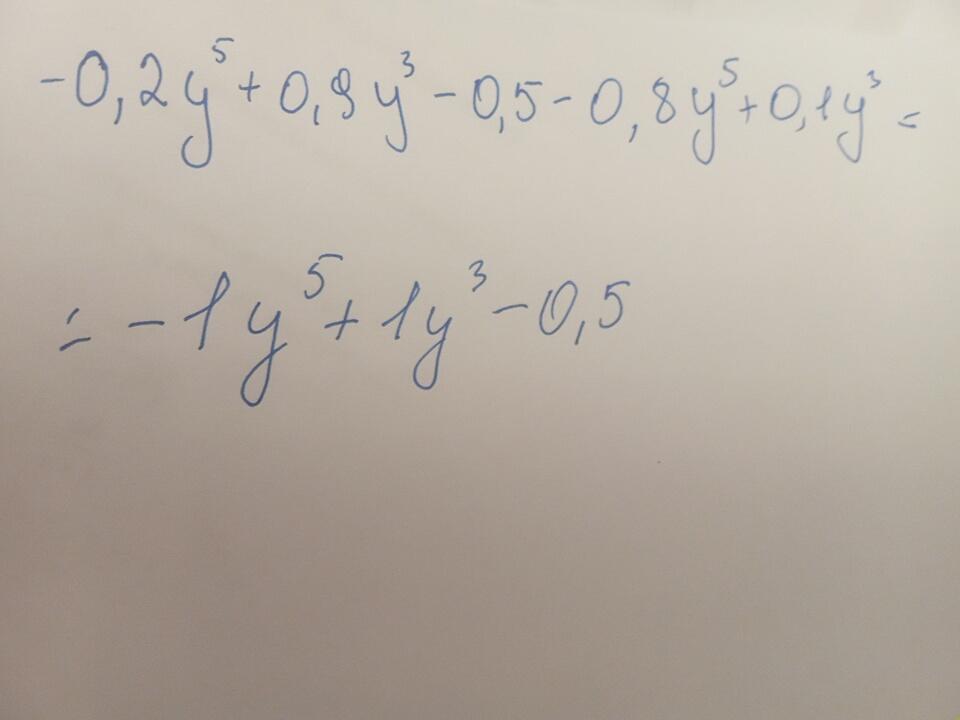 -0,2y⁵+0,9y³-0,5-0,8y⁵+0,1y³=
=-1y⁵+1y³-0,5